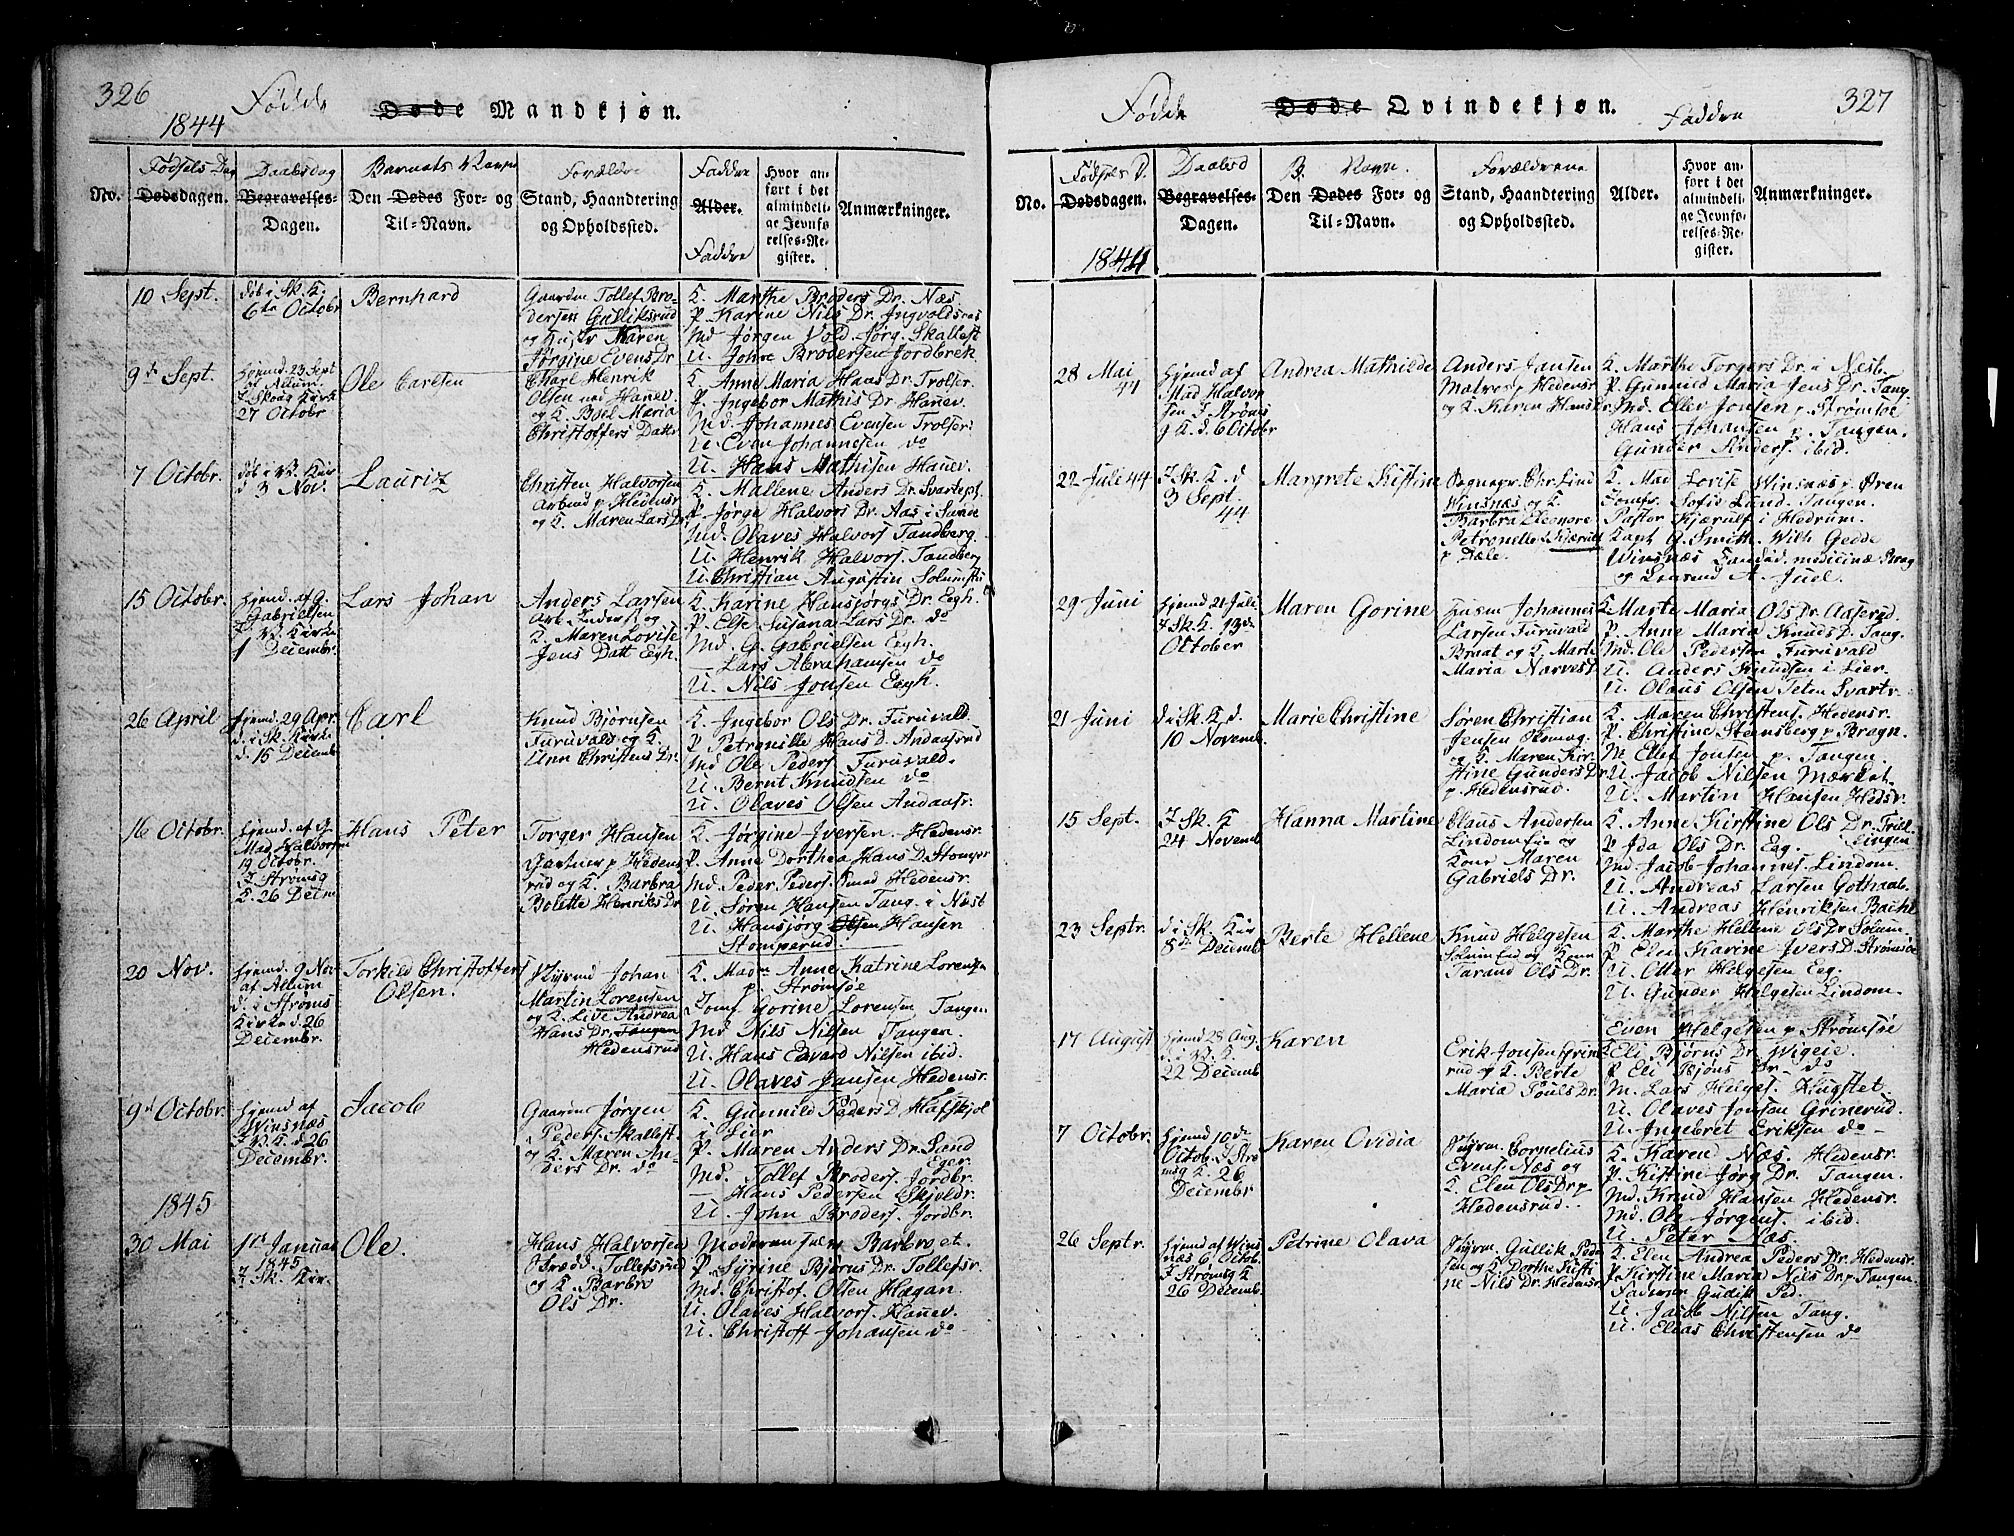 326
1844
Fødde Døde Mandkjøn.
No.
Fødsels Dag
Dødsdagen.
Daabsdag
Begravelses-
Dagen.
Barnets Navn
Den Dødes For- og
Til-Navn.
Forældre
Stand, Haandtering
og Opholdssted.
Faddre
Alder.
Faddre
Hvor an-
ført i det
almindeli-
ge Jevnfø-
relses-Re-
gister.
Anmærkninger.
10 Sept.
døb i Sk. K.
6te Octobr
Bernhard
Gaardm Tollef Bro-
dersen Gulliksrud
og Maren
Jørgine Evens Dr
K. Marthe Broders Dr. Næs.
P. Karine Nils Dr. Ingvoldsnæs
Md Jørgen Vold Jørg. Skallest
U. John Brodersen Jordbrek
9de Sept.
hjemd. 23 Sept
af Allum
I Skoug Kirk
27 Octobr
Ole Carlsen
Charl Henrik
Olsen Hanev.
og K. Boel Maria
Christoffers Datt
K. Anne Maria Hans Dr. Trolser
P. Ingebor Mathis Dr. Hanev.
Md Johannes Evensen Trolser
U. Even Johannesen do
U. Hans Mathisen Hanev.
7 Octobr.
døb i V. Kir
d 3 Nov.
Lauriz
Christen Halvorsen
Arbmd p. Hedensr
og K. Maren Lars Dr
K. Mallene Anders Dr. Svartepl.
P. Jørge Halvors Dr. Aas i Sande
Md. Olaves Halvors Tandberg.
U. Henrik Halvors. Tandberg
U. Christian Augustin Solumsti
15 Octobr.
hjemd. af G.
Gabrielsen
I V. Kirke
1 Decembr.
Lars Johan
Anders Larsen
og
K. Maren Lovise
Jens Datt Egh.
K. Karine Hansjørgs Dr. Egh.
P. Else Susana Lars Dr. do
Md. G. Gabrielsen Egh.
— Lars Abrahamsen do
U. Nils Jonsen Eegh.
26 April
hjemd. 29 Apr.
d. i Sk. Kirke
d. 15 Decemb
Carl
Knud Bjørnsen
Furuvald og K.
Ann Christens Dr.
K. Ingebor Ols Dr. Furuvald
P. Petronille Hans D. Andaasrud
Md Ole Peders. Furuvald.
U. Bernt Knudsen do
U. Olaves Olsen Andaasr.
16 Octobr.
hjemd. af J.
Mad Halvorsen
19 Octobr.
I Strømsg
K. 26 Decmb
Hans Peter
Torger Hansen
Gartner p. Hedens
rud og K. Barbra
Bolette Henriks Dr
K. Jørgine Iversen. Hedensr.
P. Anne Dorthea Hans D. Stomper
Md. Peder Peders. Hedensr.
U. Søren Hansen Tang. i Næst
U. Hansjørg Olsen Hansen
Stomperud
20 Nov.
hjemd. 9 Nov
af Allum
d. i Strøms
Kirke d. 26
Decembr.
Torkild Christoffers
Olsen.
Styrmd Johan
Martin Lorensen
og K. Live Andrea
Hans Dr. Tangen
Hedensrud
K. Madm Anne Katrine Lorensen
p. Strømsøe
Jomf Gorine Lorensen Tangen
Md Nils Nilsen Tangen.
U. Hans Edvard Nilsen ibid.
U. Olaves Jansen Hedensr.
9de Octobr.
hjemd af
Winsnæs
I V. K. d 26
Decembr.
Jacob
Gaardm Jørgen
Peders. Skallest.
og K. Maren An-
ders Dr. do
K. Gunnild Peders D. Hafskjol
i Lier
P. Maren Anders Dr. Sand
Eger.
Md. Tollef Broders. Jordbr.
— Hans Pedersen Skjoldr.
U. John Broders. Jordbr.
1845
30 Mai
1ste Januar
1845
I Sk. Kir.
Ole.
Hans Halvorsen
Tollefsrud
og K. Barbro
Ols Dr.
Moderen selv Barbro et.
P. Sirine Bjørns Dr. Tollefsr.
Md. Christof. Olsen Hagan.
U. Olaves Halvors. Hanev.
U. Christoff Johansen do
327
Fødde Døde Qvindekjøn.
Faddre
No.
Fødsels D.
Dødsdagen.
1844
Daabsd
Begravelses-
Dagen.
B. Navn.
Den Dødes For- og
Til-Navn.
Forældrene
Stand, Haandtering
og Opholdssted.
Alder.
Hvor an-
ført i det
almindeli-
ge Jevnfø-
relses-Re-
gister.
Anmærkninger.
28 Mai
44
hjemd af
Mad Halvor
sen I Strøms
g K. d. 6 Octobr
Andrea Mathilde
Anders Jansen
Matros p Hedensr
og K. Karen Hans Dr.
K. Marthe Torgers Dr. i Nest.
P. Gunnild Maria Jens Dr. Tang.
Md. Ellev Jonsen p. Strømsøe
Hans Johansen p. Tangen.
Gunder Anders. ibid.
22 Juli 44
I Sk. K. d
3 Sept.
44
Margrete Kistine
Chr. Lind
Winsnæs og K.
Barbra Eleonore
Petronelle Kjærulf
p Dale.
K. Mad Lovise Winsnæs p. Øren
Jomfr. Sofie Lund. Tangen.
Pastor Kjærulf i Hedrum.
Capt. G. Smitt. Wilh Gedde
Winsnæs Candid. medicinæ Brag
og A. Juel.
29 Juni
hjemd 21 Juli
I Sk. K. 13de
October
Maren Gorine
Husm Johannes
Larsen Furuvald
Braat og K. Marte
Maria Narvest
K. Marte Maria Ols Dr. Aaserud
P. Anne Maria Knuds D. Tang.
Md. Ole Pedersen Furuvald
U. Anders Knudsen i Lier.
U. Olaus Olsen Teten Svartr.
21 Juni
d i Sk. K. d.
10 Novemb.
Marie Christine
Søren Christian
Jensen
og K. Maren Kir-
stine Gunders Dr
p. Hedensrud.
K. Maren Christens. Hedensr.
P. Christine Steensberg p. Bragn.
M. Ellef Jonsen p. Tangen.
U. Jacob Nilsen Mærket.
U. Martin Hansen Hedsr.
15 Sept.
I Sk. K
24 Novemb
Hanna Martine
Claus Andersen
Lindom og
Kone Maren
Gabriels Dr.
K. Anne Kirstine Ols Dr. Trel-
P Ida Ols Dr. Egg.
Md. Jacob Johannes. Lindom.
U. Andreas Larsen Gothaab.
U. Andreas Henriksen Bache
23 Septr.
d i Sk. Kir
8de Decemb
Berte Hellene
Knud Helgesen
Solum og Kone
Tarand Ols Dr.
K. Marthe Hellene Ols Dr Solum.
P. Elen Karine Ivers D. Strømsøe
U. Otter Helgesen Eeg.
U. Gunder Helgesen Lindom.
Even Helgesen p. Strømsøe
17 August
hjemd 28 Aug.
d. i V. K.
22 Decemb
Karen
Erik Jonsen Grine
rud og K. Berte
Maria Pouls Dr.
K. Eli Bjørns Dr. Wigeie.
P. Eli Bjøns Dr. do
M. Lars Helges. Hugstet
U. Olaves Jonsen Grinerud.
U. Ingebret Eriksen do
7 Octobr.
hjemd 10de
Octob. I Strø
msg K. 26
Decembr
Karen Ovidia
Styrm. Cornelius
Evens. Næs og
K. Elen Ols Dr p
Hedensrud.
K. Karen Næs. Hedensr.
P. Kistine Jørg Dr. Tangen.
Md. Knud Hansen Hedensr.
Md. Ole Jørgens. ibid.
U. Peter Næs.
26 Septr.
hjemd af Wins
næs 6 Octob.
I Strømsg K
26 Decemb.
Petrine Olava
Styrm. Gullik Peder
sen og K. Dorthe Kisti
ne Nils Dr. Hedensr.
K. Elen Andrea Peders Dr. Hedensr.
P. Kirstine Maria Nils Dr. p. Tangen.
Faderen Gullik Ped.
U. Jacob Nilsen Tang.
U. Elias Christensen do